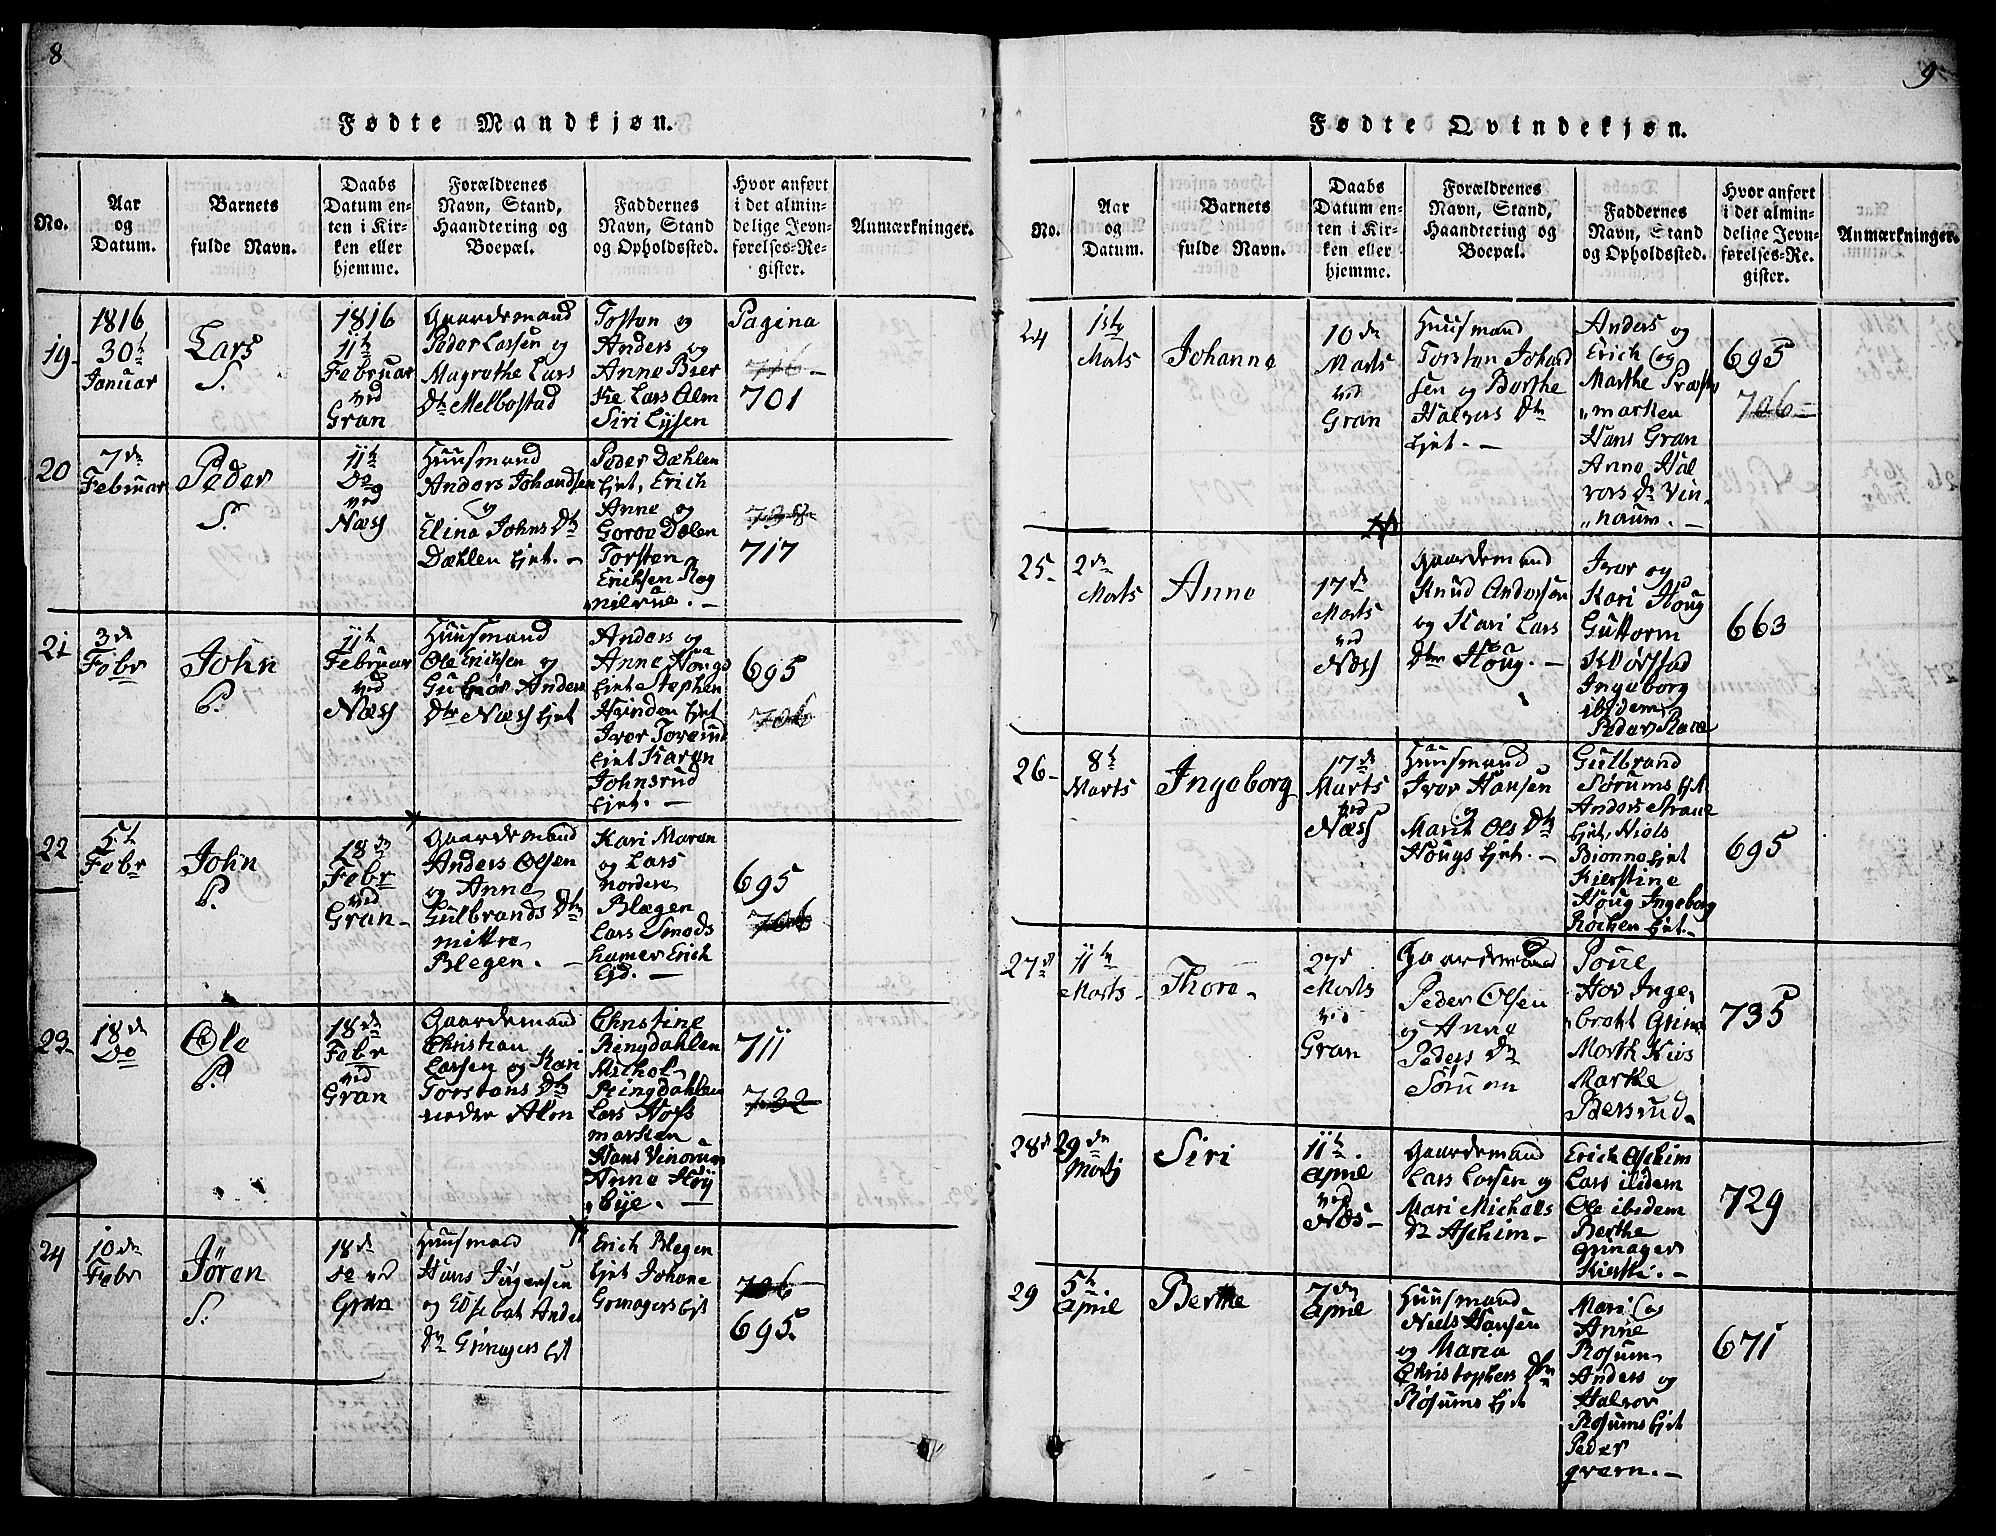 8
Fødte Mandkjøn.
No.
Aar
og
Datum.
Barnets
fulde Navn.
Daabs
Datum en-
ten i Kir-
ken eller
hjemme.
Forældrenes
Navn, Stand,
Haandtering og
Boepæl.
Faddernes
Navn, Stand
og Opholdssted.
Hvor anført
i det almin-
delige Jevn-
førelses-Re-
gister.
Anmærkninger.
19-
1816
30t
Januar
Lars
S.
1816
11t
Februar
ved
Gran
Gaardemand
Peder Larsen og
Magrethe Lars
Dtr Melbostad
Tosten og
Anders og
Anne Bier
Ke Lars Alm
Siri Lysen
Pagina
716
701
20
7de
Februar
Peder
S.
11t
Do
ved
Næss
Huusmand
Anders Johandsen
og
Elina Johns Dtr
Dæhlen Ejet. -
Peder Dæhlen
Ejet, Erich
Anne og
Goroe Dælen
Torsten
Erichsen Rog
nilrue. -
738
717
21
3d
Febr
John
P.
11t
Februar
ved
Næss
Huusmand
Ole Erichsen og
Anders
Dtr Næss Ejet
Anders og
Anne Hougs
Ejet Stephen
Hvinden Ejet
Iver
Ejet Karen
Johnsrud
Ejet. -
695
706
22
5t
Febr
John
P.
18de
Febr
ved
Gran-
Gaardemand
Anders Olsen
og Anne
Gulbrands Dtr
mittre
Blegen. -
Kari Maren
og Lars
nordere
Blegen
Lars Smeds
hamer Erich
Ejd. -
695
706
23-
18de
Do
Ole
P.
18de
Febr
ved
Gran
Gaardemand
Christian
Larsen og Kari
Torstens Dtr
nedre Alm
Christine
Ringdahlen
Michel
Ringdahlen
Lars Hofs
marken
Hans Vinorum
Anne Høy
bye. -
711
732
24
10de
Febr
Jøren
S.
18de
do ved
Gran
Huusmand
Hans Jørgensen
og Elsebet Anders
Dtr Grinagers Ejt
Erich Blegen
Ejet Johane
Grinagers Ejt
706
695.
9
Fødte Qvindekjøn.
No.
Aar
og
Datum.
Barnets
fulde Navn.
Daabs
Datum en-
ten i Kir-
ken eller
hjemme.
Forældrenes
Navn, Stand,
Haandtering og
Boepæl.
Faddernes
Navn, Stand
og Opholdssted.
Hvor anført
i det almin-
delige Jevn-
førelses-Re-
gister.
Anmærkninger.
24
1ste
Marts
Johanne
10de
Marts
ved
Gran
Huusmand
Torsten Johand
sen og Berthe
Halvors Dtr
Ejet. -
Anders og
Erich og
Marthe Præste
marken
Hans Gran
Anne Hal
vors Dtr Vin
naum. -
695
706-
25-
2de
Marts
Anne
17de
Marts
ved
Næss
Gaardemand
Knud Andersen
og Kari Lars
Dtr Houg. -
Iver og
Kari Houg
Guttorm
Kvørstad
Ingeborg
ibidem
Peder
663
26-
8t
Marts
Ingeborg
17de
Marts
ved
Næss
Huusmand
Iver Hansen
og
Marit Ols Dtr
Hougs Ejet. -
Gulbrand
Sørums Ejt
Anders
Ejet, Niels
Bionne Ejet
Kierstine
Houg Ingeborg
Røchen Ejet. -
695
27d
11te
Marts-
Thore-
27d
Marts
ved
Gran
Gaardemand
Peder Olsen
og Anne
Peders Dtr
Sørum
Poue
Hov Inge
brett
Marth
Marthe
Bersrud.
735
28d
29de
Martj
Siri
11t.
April
ved
Næs-
Gaardemand
Lars Larsen og
Mari Michaels
Dtr Aschim-
Erich Aschim
Lars ibidem
Ole ibedem
Berthe
Grinager
Kiersti. -
729
29
5te
April
Berthe
7de
April
Huusmand
Niels Hansen
og Maria
Christophers Dtr
Røsums Ejet
Mari og
Anne
Rosum
Anders og
Halvor
Rosums Ejet
Peder
qværn. -
671